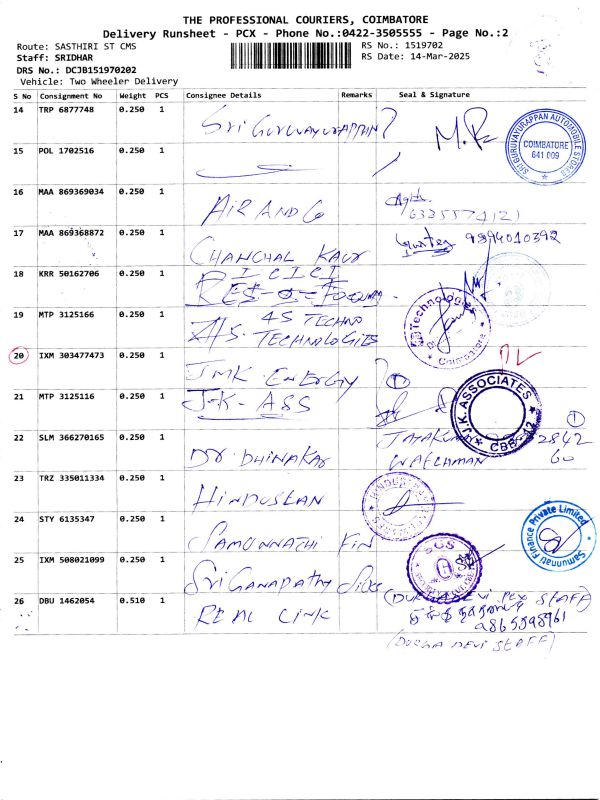 THE PROFESSIONAL COURIERS, COIMBATORE
Delivery Runsheet - PCX - Phone No.:0422-3505555 - Page No.:2
Route: SASTHIRI ST CMS
RS No.: 1519702
Staff: SRIDHAR
RS Date: 14-Mar-2025
DRS No.: DCJB151970202
Vehicle: Two Wheeler Delivery
S No Consignment No Weight PCS Consignee Details Remarks Seal & Signature
14 TRP 6877748 0.250 1 Sri Guruvayurappan
SRI GURUVAYURAPPAN AUTOMOBILE STORES
COIMBATORE
641 009
15 POL 1702516 0.250 1
16 MAA 869369034 0.250 1 AIR AND Co
17 MAA 869368872 0.250 1 CHANCHAL KAUR 9894010392
18 KRR 50162706 0.250 1 ICICI
19 MTP 3125166 0.250 1 4S TECHNO
4S. TECHNOLOGIES
Technologies
Coimbatore
20 IXM 303477473 0.250 1 JMK ENERGY 1
21 MTP 3125116 0.250 1 J-K- ASS
J.K. ASSOCIATES
CBE-12
1
22 SLM 366270165 0.250 1 DR. DHINAKAR JAYAKUMAR 2842
WATCHMAN 60
23 TRZ 335011334 0.250 1 HINDUSTAN
24 STY 6135347 0.250 1 SAMUNNATHI FIN
Samunnati Finance Private Limited
25 IXM 508021099 0.250 1 Sri GANAPATHY
26 DBU 1462054 0.510 1 REAL LINK
(DURGA DEVI PCX STAFF)
9865898961
(DURGA DEVI STAFF)